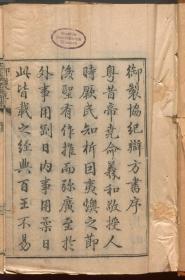 御製協紀辯方書序
粵昔帝堯命羲和敬授人
時厥民知析因夷燠之節
後聖有作推而彌廣至於
外事用剛日内事用柔日
此皆載之經典百王不易